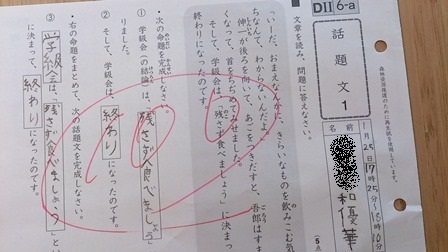 DⅡ 6-a
話題文 1
森林資源保護のために再生紙を使用しています。
名前
月25日17時25分
文章を読み、問題に答えなさい。
「いーだ。おまえなんかに、きらいなものを飲みこむ気
ちなんて、わからないんだよ。」
伸一が後ろを向いて、あごをつきだすと、吾郎はすま
なくなって、首をちぢめてみせました。
そして、学級会は、「残さず食べましょう」に決まって、
終わりになったのです。
次の命題を完成しなさい。
① 学級会の結論は、残さず食べましょう
りました。
② そして、学級会は、終わりになったのです。
右の命題をまとめて、次の話題文を完成しなさい。
③ 学級会は、残さず食べましょうと
に決まって、終わりになったのです。
100